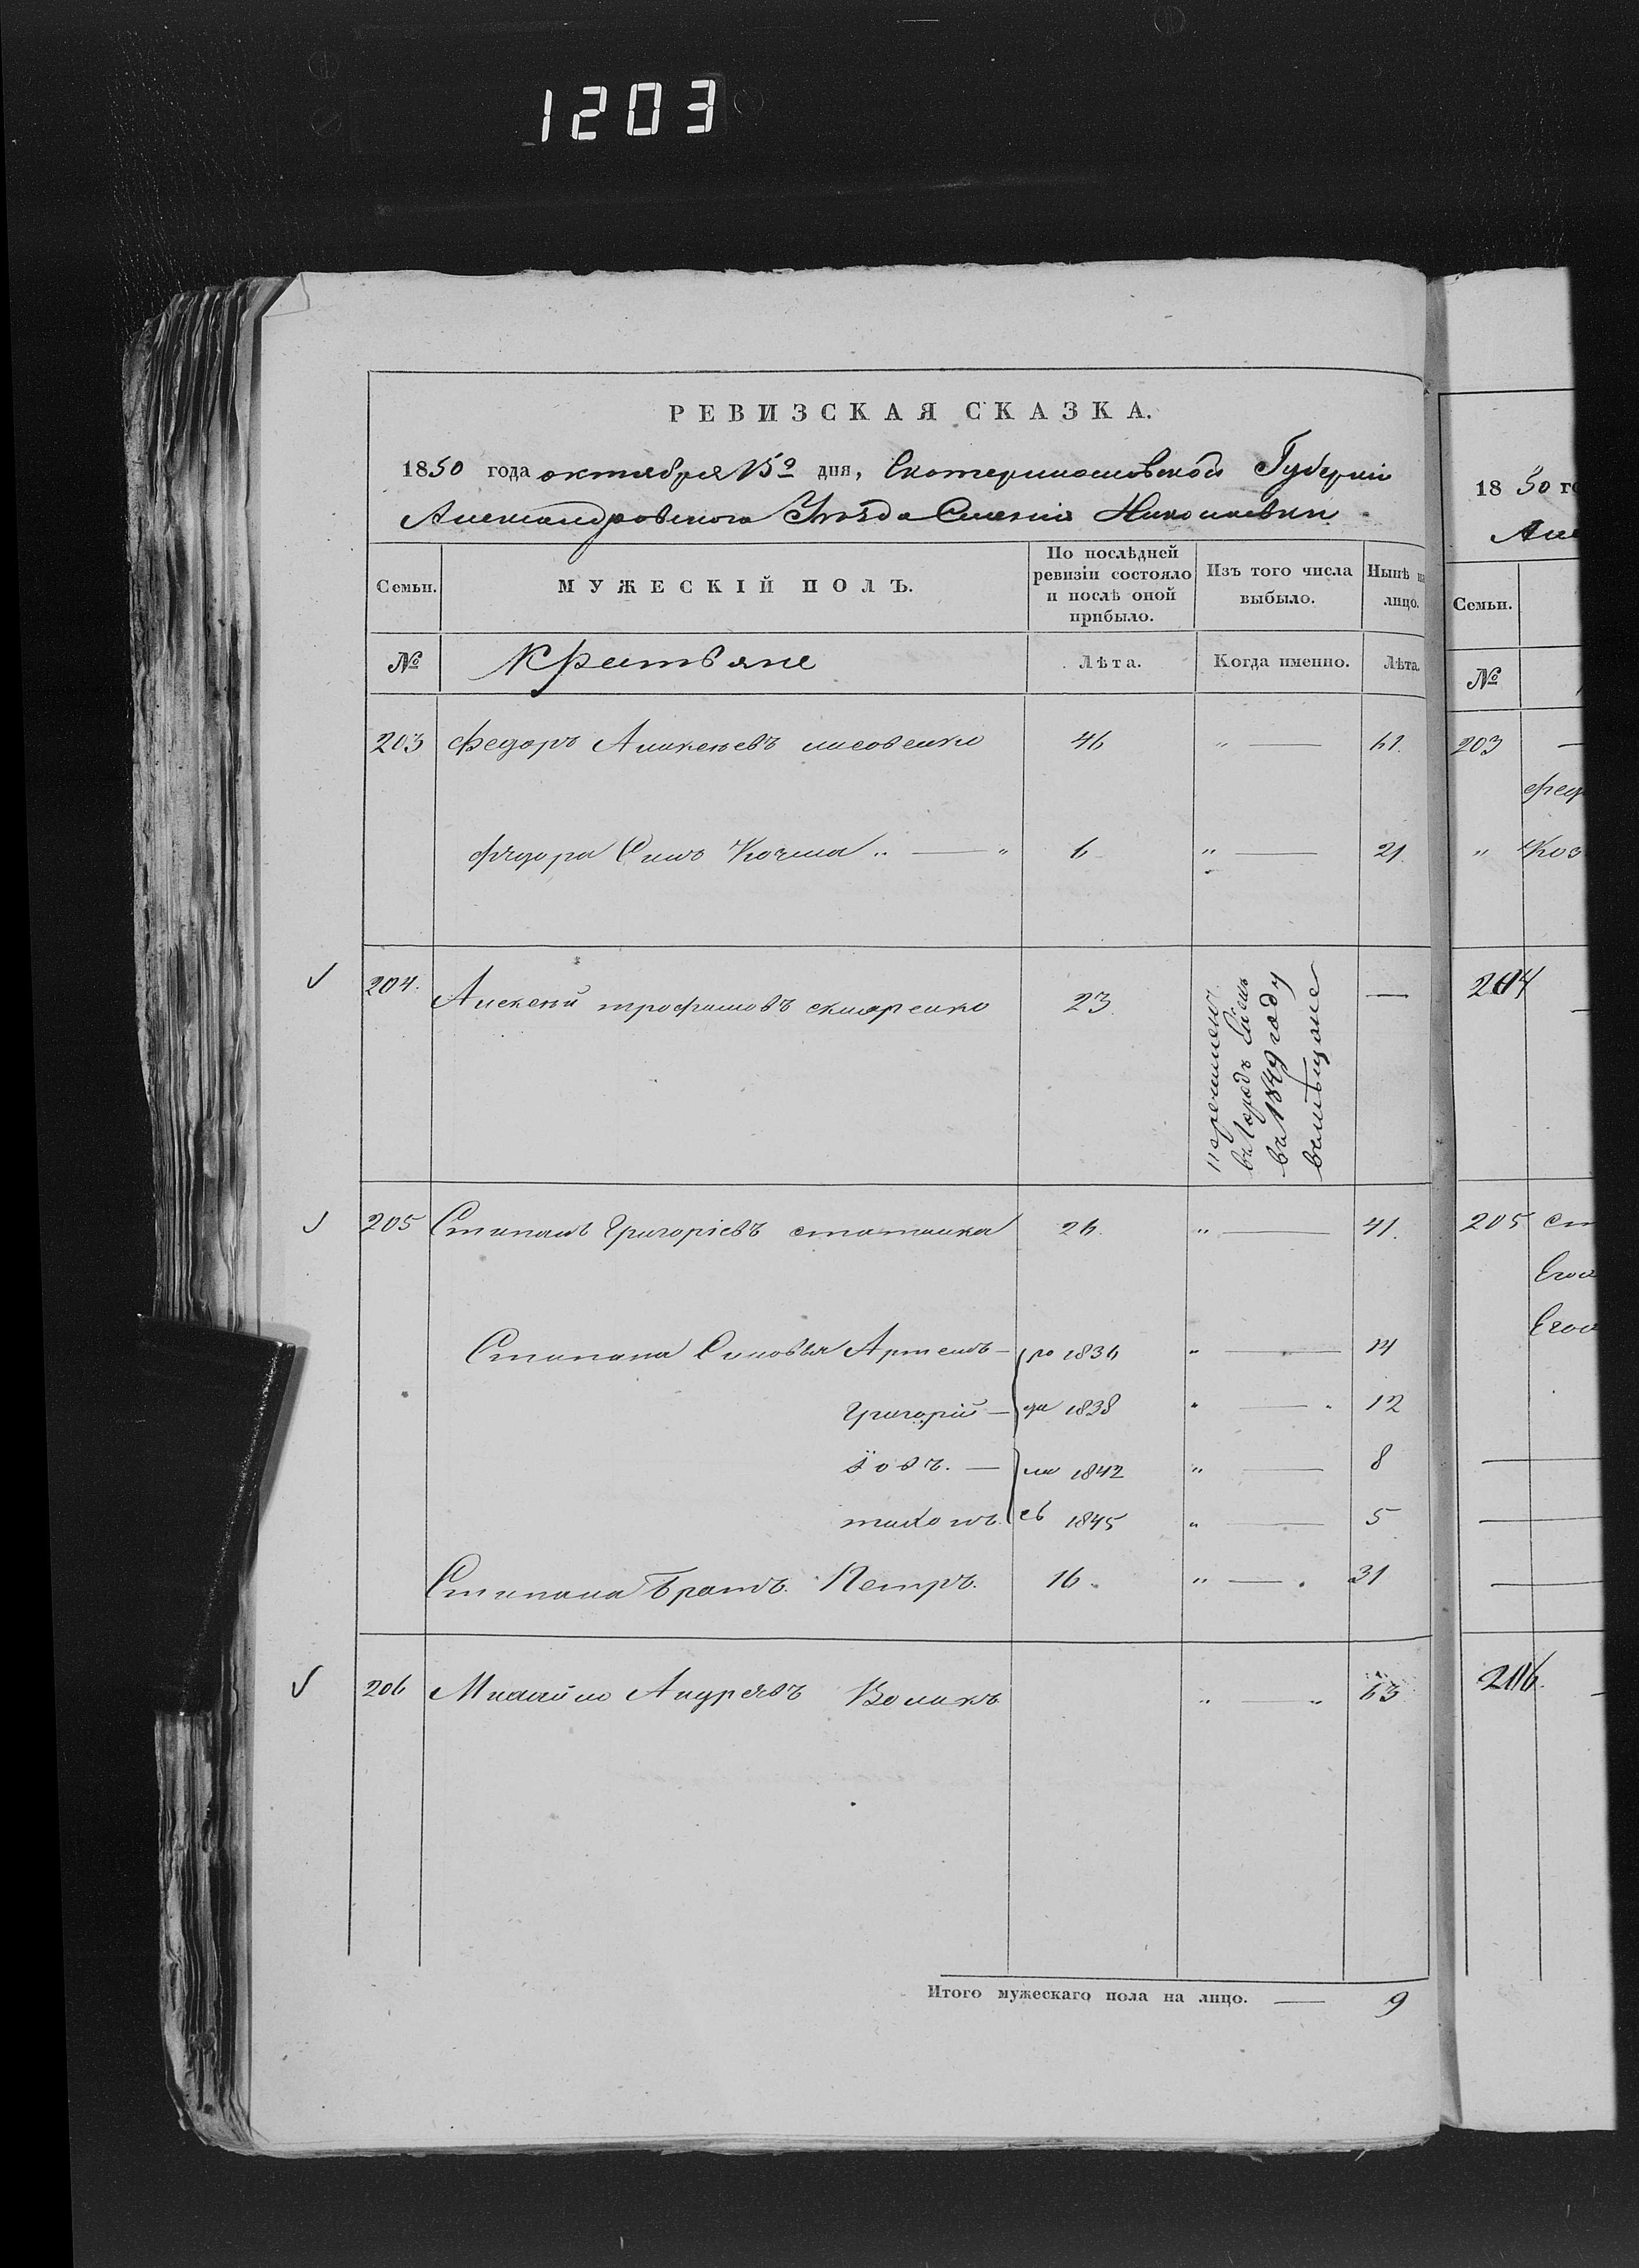 1203
РЕВИЗСКАЯ СКАЗКА.
1850 года октября 15го дня, Екатеринославской Губерніи
Александровского Уѣзда Слагнія Николаевки
Семьи.
МУЖЕСКІЙ ПОЛЪ.
По послѣдней ревизіи состояло и послѣ оной прибыло.
Изъ того числа выбыло.
Нынѣ на лицо.
№ Крестьяне Лѣта. Когда именно. Лѣта.
203 Федоръ лисовенко 46 " — 61.
Федора Синъ Козма " — " 6 " — 21.
204. Алексѣй трофимовъ скляренко 23. —
въ 1849 году
вмѣщане
205 Стипанъ Григоріевъ 26. " — 41.
Стипана Синовья Артемъ — ро 1836 " — 14
Григорій — ди 1838 " — " 12
Іовъ. — ли 1842 " — 8
тихонъ. съ 1845 " — 5
Стипана Братъ. Петръ. 16. " — . 31
206 Михайло Андреевъ Воликъ " — " 63
Итого мужескаго пола на лицо. — 9
1850 го
Але
Семьи.
№
203 —
Фед
" Коз
204 —
205 Ст
Его
Его
206. —